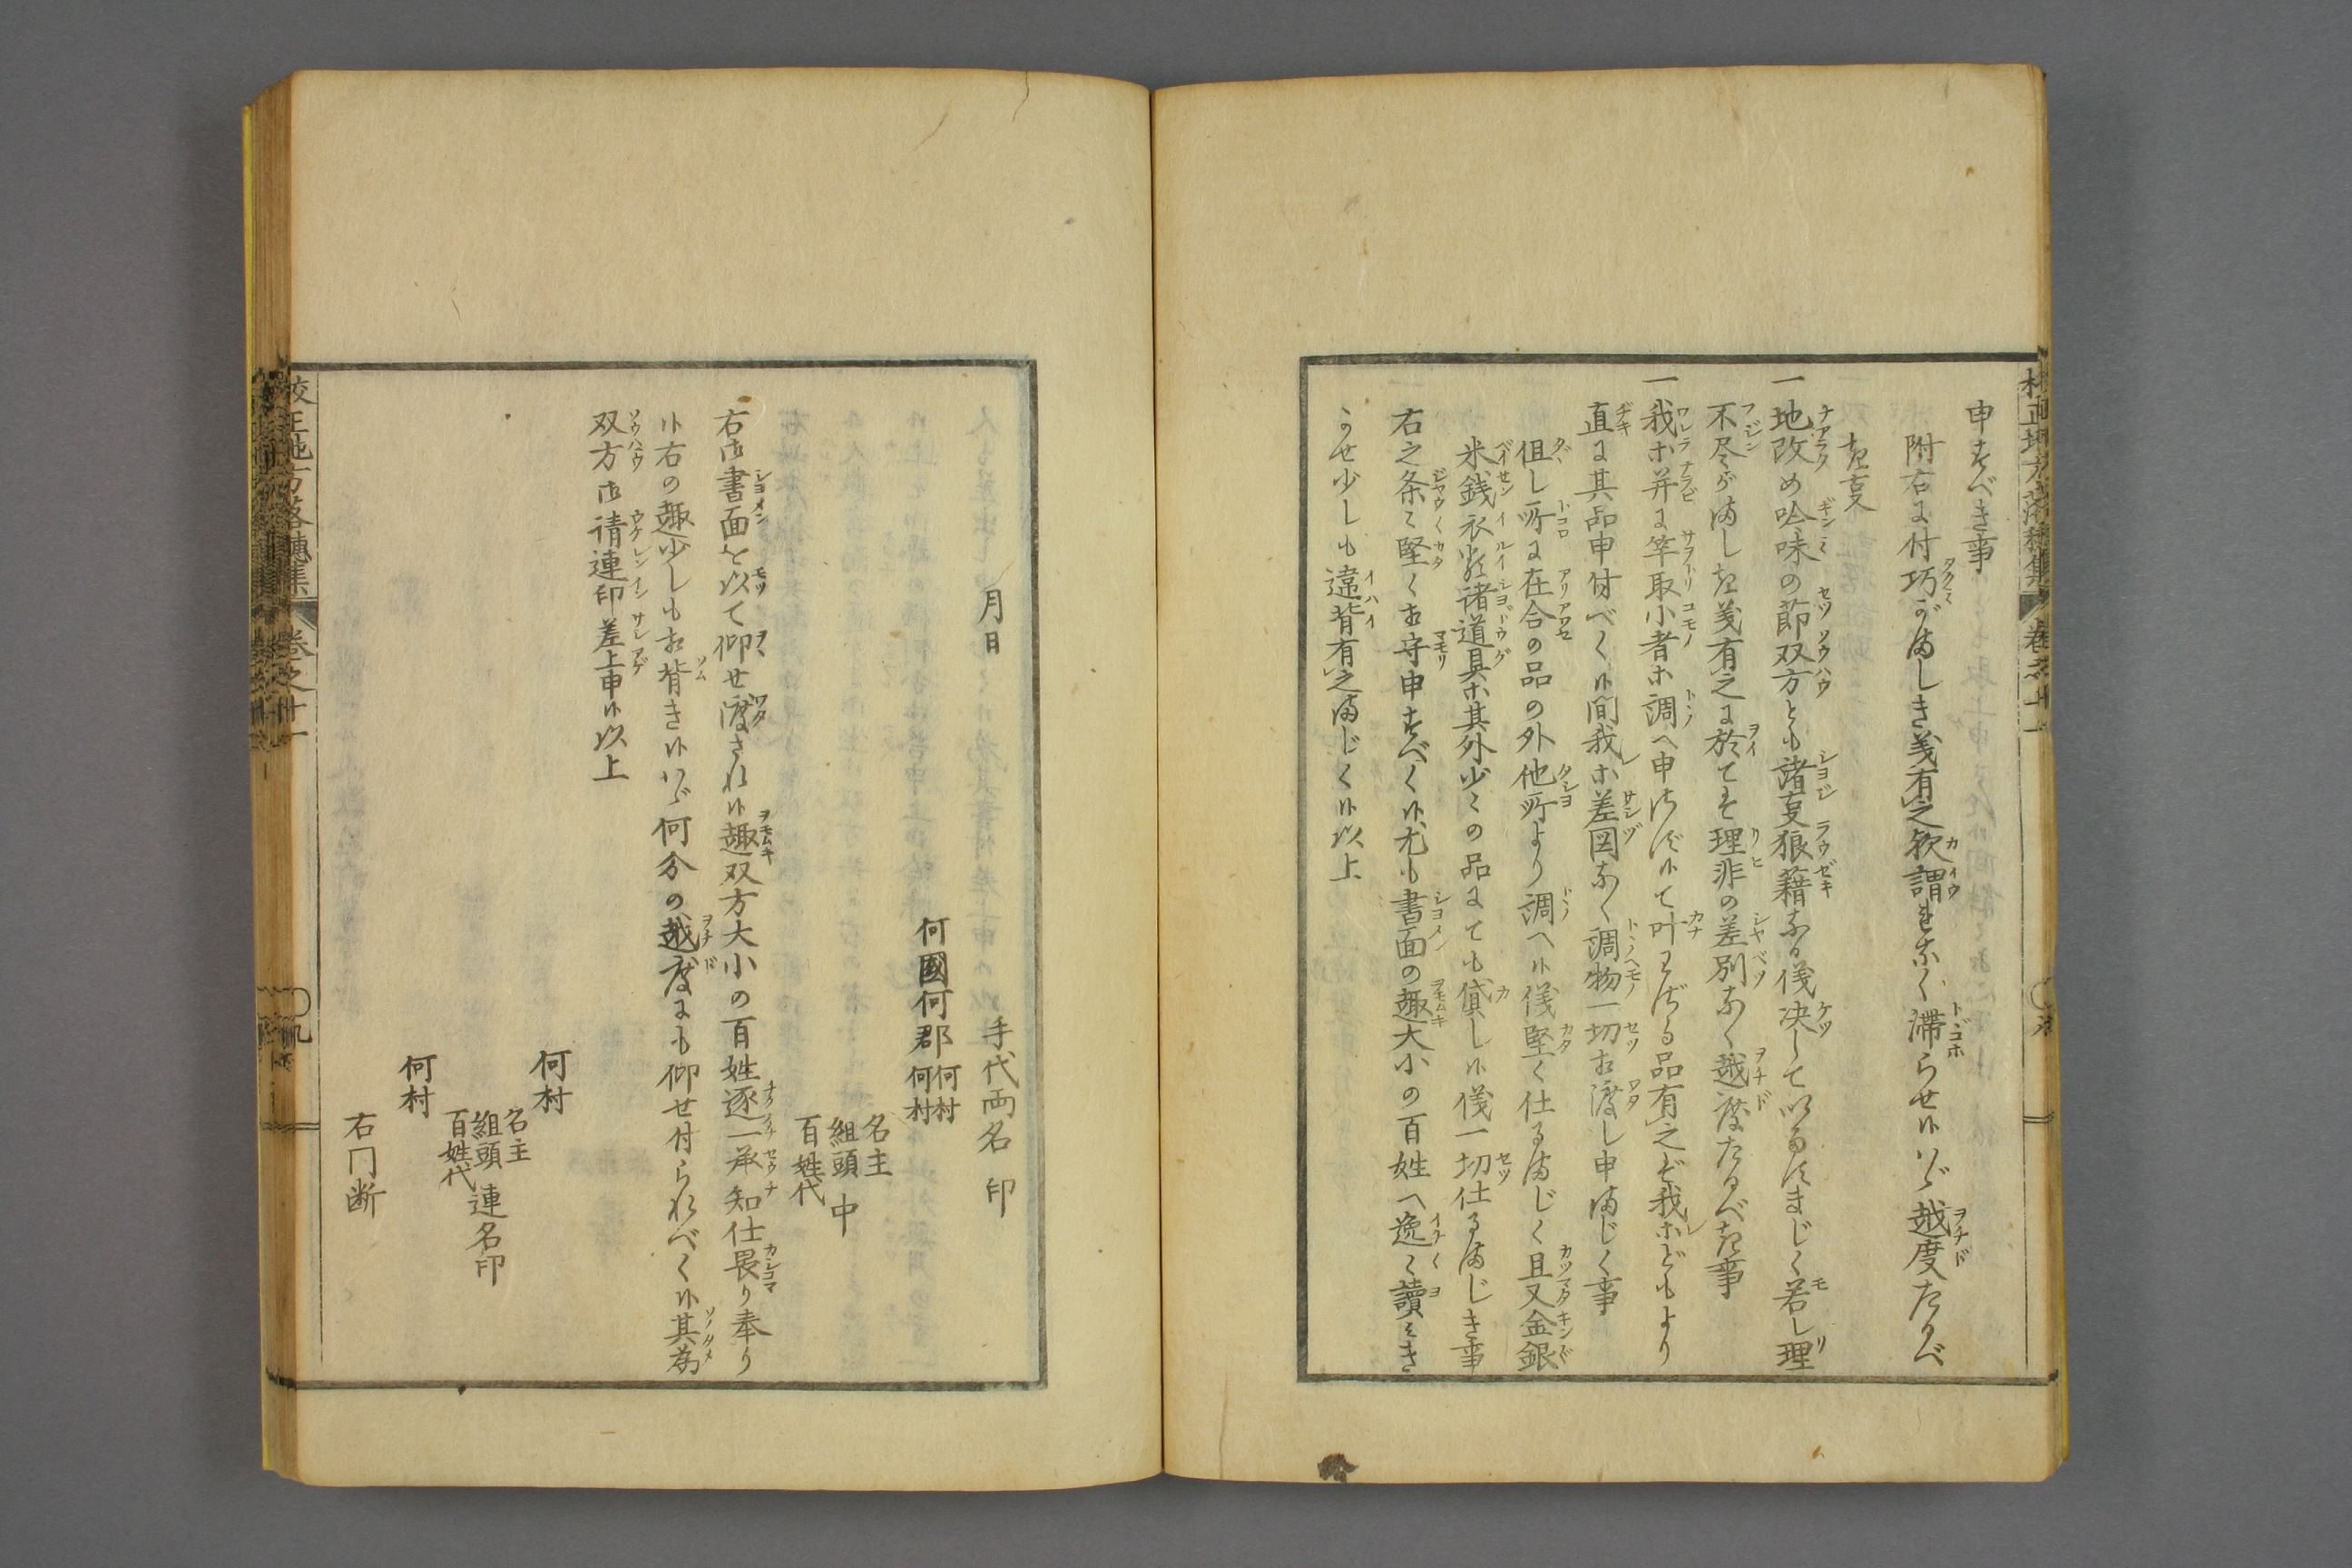 申すべき事
附右に付巧がましき義有之欤謂もなく滞らせ候ハゞ越度たるべ
き支
一地改め吟味の節双方とも諸支狼藉なる儀决していたすまじく若し理
不尽がましき義有之に於てハ理非の差別なく越度たるべき事
一我ホ并に竿取小者ホ調へ申さず候て叶ハざる品有之ぞ我ホどもより
直に其品申付べく候間我ホ差図なく調物一切相渡し申まじく事
但し所に在合の品の外他所より調へ候儀堅く仕るまじく且又金銀
米銭衣類諸道具ホ其外少々の品にても貸し候儀一切仕るまじき事
右之条々堅く相守申すべく候尤も書面の趣大小の百姓へ逸々讀きき
かせ少しも違背有之まじく候以上
月日
手代両名印
何國何郡何村何村
名主
組頭中
百姓代
右御書面を以て仰せ渡され候趣双方大小の百姓逐一承知仕畏り奉り
候右の趣少しも相背き候ハゞ何分の越度にも仰せ付られべく候其為
双方御請連印差上申候以上
何村
名主
組頭連名印
百姓代
何村
右同断
校正地方落穗集
巻之十一